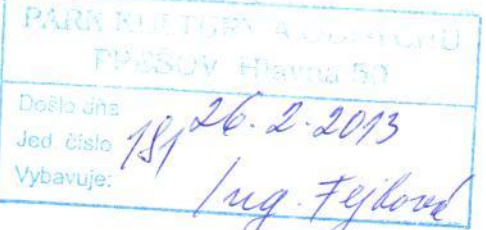 PARK KULTURY A ODDYCHU
PREŠOV Hlavná 50
Došlo dňa 26-2-2013
Jed. číslo 181
Vybavuje: Ing. Fejková